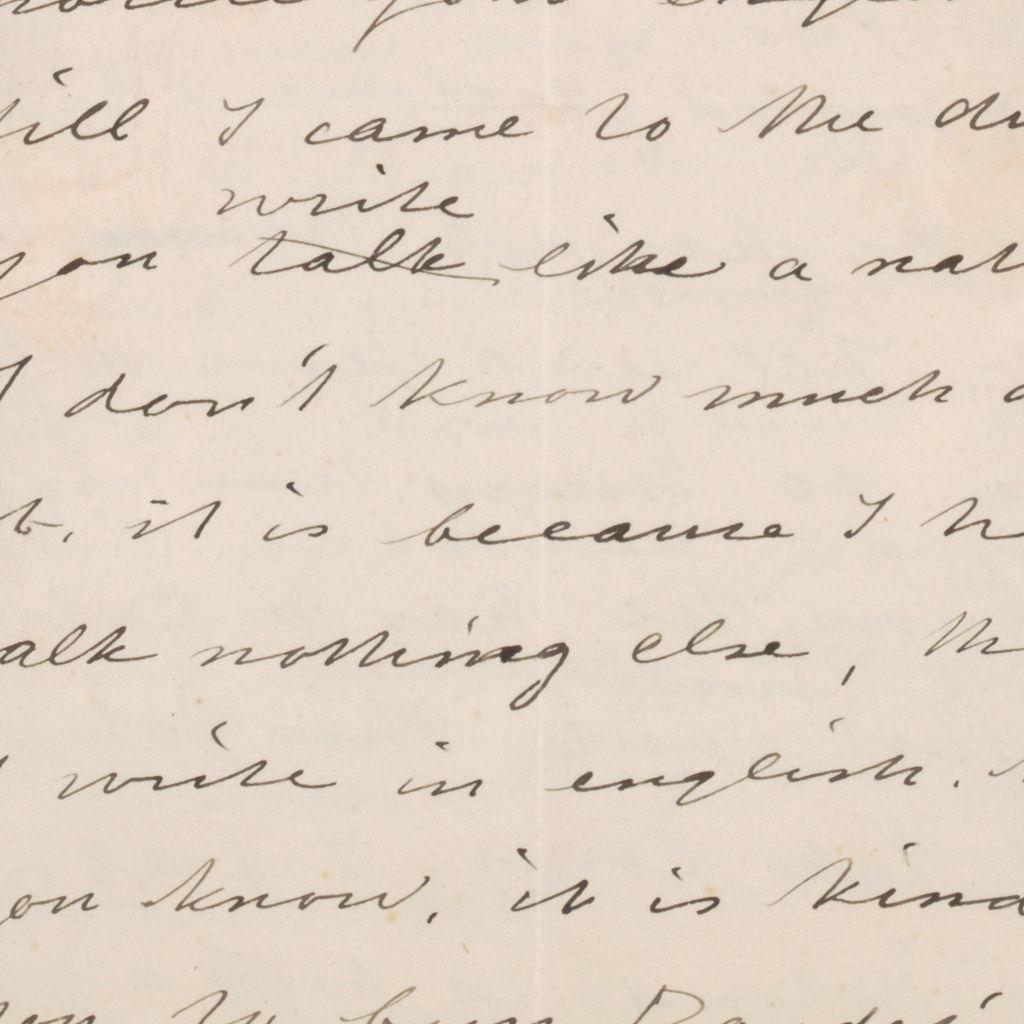 till I came to the
write
you talk like a nat
I don't know much
it is because I
alk nothing else, th
write in english.
on know, it is kind